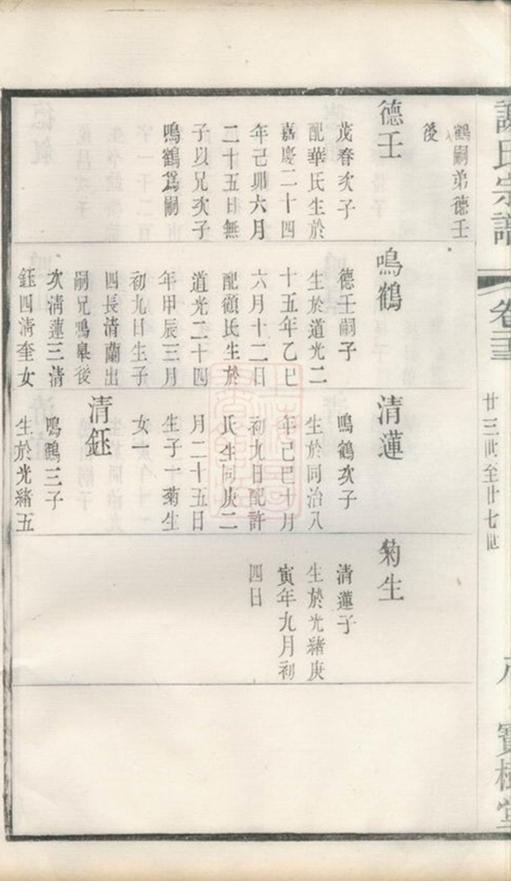 謝氏宗譜
卷三
廿三世至廿七世
寶樹堂
鶴嗣弟德壬
後
德壬
茂春次子
配華氏生於
嘉慶二十四
年己卯六月
二十五日無
子以兄次子
鳴鶴爲嗣
鳴鶴
德壬嗣子
生於道光二
十五年乙巳
六月十二日
配顧氏生於
道光二十四
年甲辰三月
初九日生子
四長清蘭出
嗣兄鳴皋後
次清蓮三清
鈺四清奎女
清蓮
鳴鶴次子
生於同治八
年己巳十月
初九日配許
氏生同庚二
月二十五日
生子一菊生
女一
清鈺
鳴鶴三子
生於光緒五
菊生
清蓮子
生於光緒庚
寅年九月初
四日